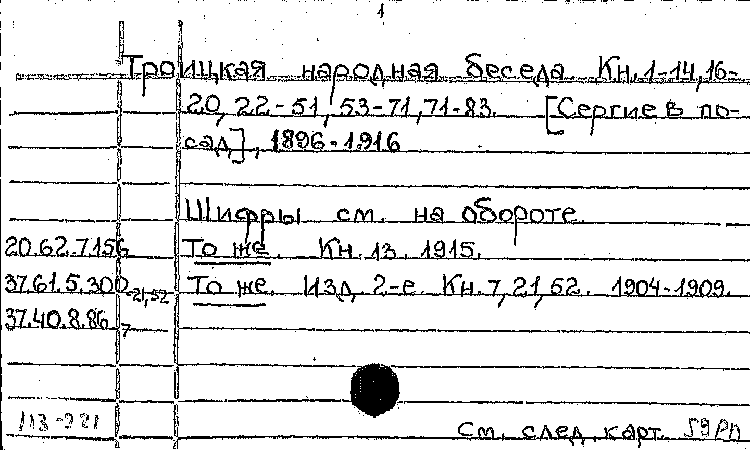 1
Троицкая народная беседа. Кн. 1-14, 16-
20, 22-51, 53-71, 71-83. [Сергиев по-
сад], 1896-1916
Шифры см. на обороте.
20.62.7.156 То же. Кн. 13. 1915.
37.61.5.300 -21,52 То же. Изд. 2-е. Кн. 7, 21, 52. 1904-1909.
37.40.8.86 7
113-921 См. след. карт.